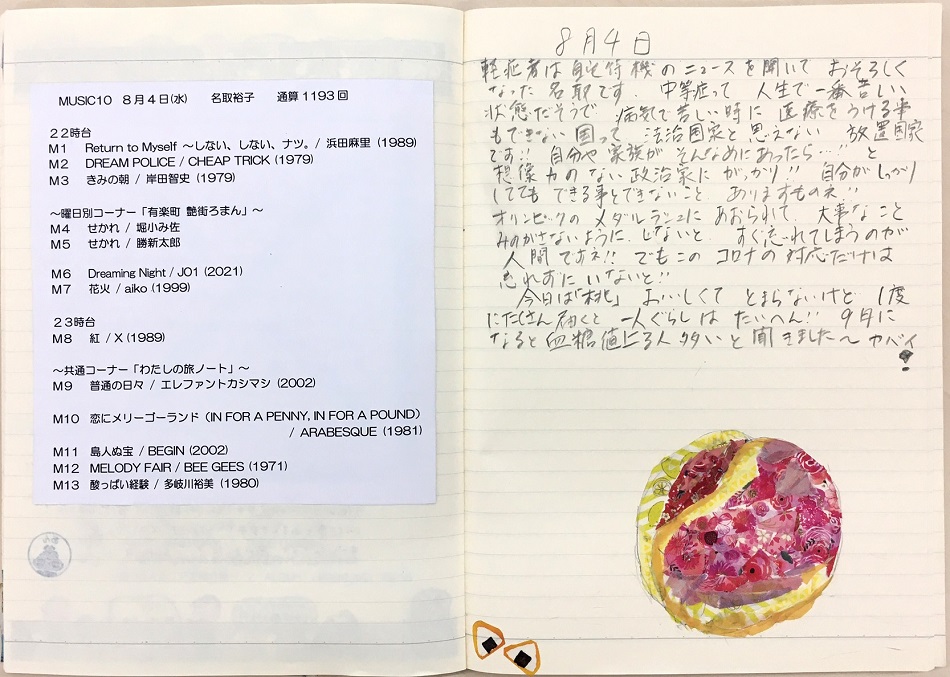 MUSIC10　８月４日(水)　　名取裕子　　通算１１９３回
２２時台
M1　Return to Myself ～しない、しない、ナツ。/ 浜田麻里 (1989)
M2　DREAM POLICE / CHEAP TRICK (1979)
M3　きみの朝 / 岸田智史 (1979)
～曜日別コーナー「有楽町 艶街ろまん」～
M4　せかれ / 堀小み佐
M5　せかれ / 勝新太郎
M6　Dreaming Night / JO1 (2021)
M7　花火 / aiko (1999)
２３時台
M8　紅 / X (1989)
～共通コーナー「わたしの旅ノート」～
M9　普通の日々 / エレファントカシマシ (2002)
M10　恋にメリーゴーランド（IN FOR A PENNY, IN FOR A POUND）
/ ARABESQUE (1981)
M11　島人ぬ宝 / BEGIN (2002)
M12　MELODY FAIR / BEE GEES (1971)
M13　酸っぱい経験 / 多岐川裕美 (1980)
８月４日
軽症者は自宅待機のニュースを聞いて おそろしく
なった 名取です. 中等症って 人生で一番苦しい
状態だそうで 病気で苦しい時に 医療をうける事
もできない 国って 法治国家と思えない 放置国家
です!! 自分や家族が そんなめにあったら…!! と
想像力のない政治家に がっかり!! 自分がしっかり
してても できる事とできないこと ありますものネ!!
オリンピックの メダルラッシュに あおられて, 大事なこと
みのがさないように, しないと, すぐ忘れてしまうのが
人間ですネ!! でもこの コロナの対応だけは
忘れずに いないと!!
今日は「桃」 おいしくて とまらないけど, １度
にたくさん 届くと 一人ぐらしは たいへん!! ９月に
なると 血糖値上る人 多いと 聞きました〜 ヤバイ